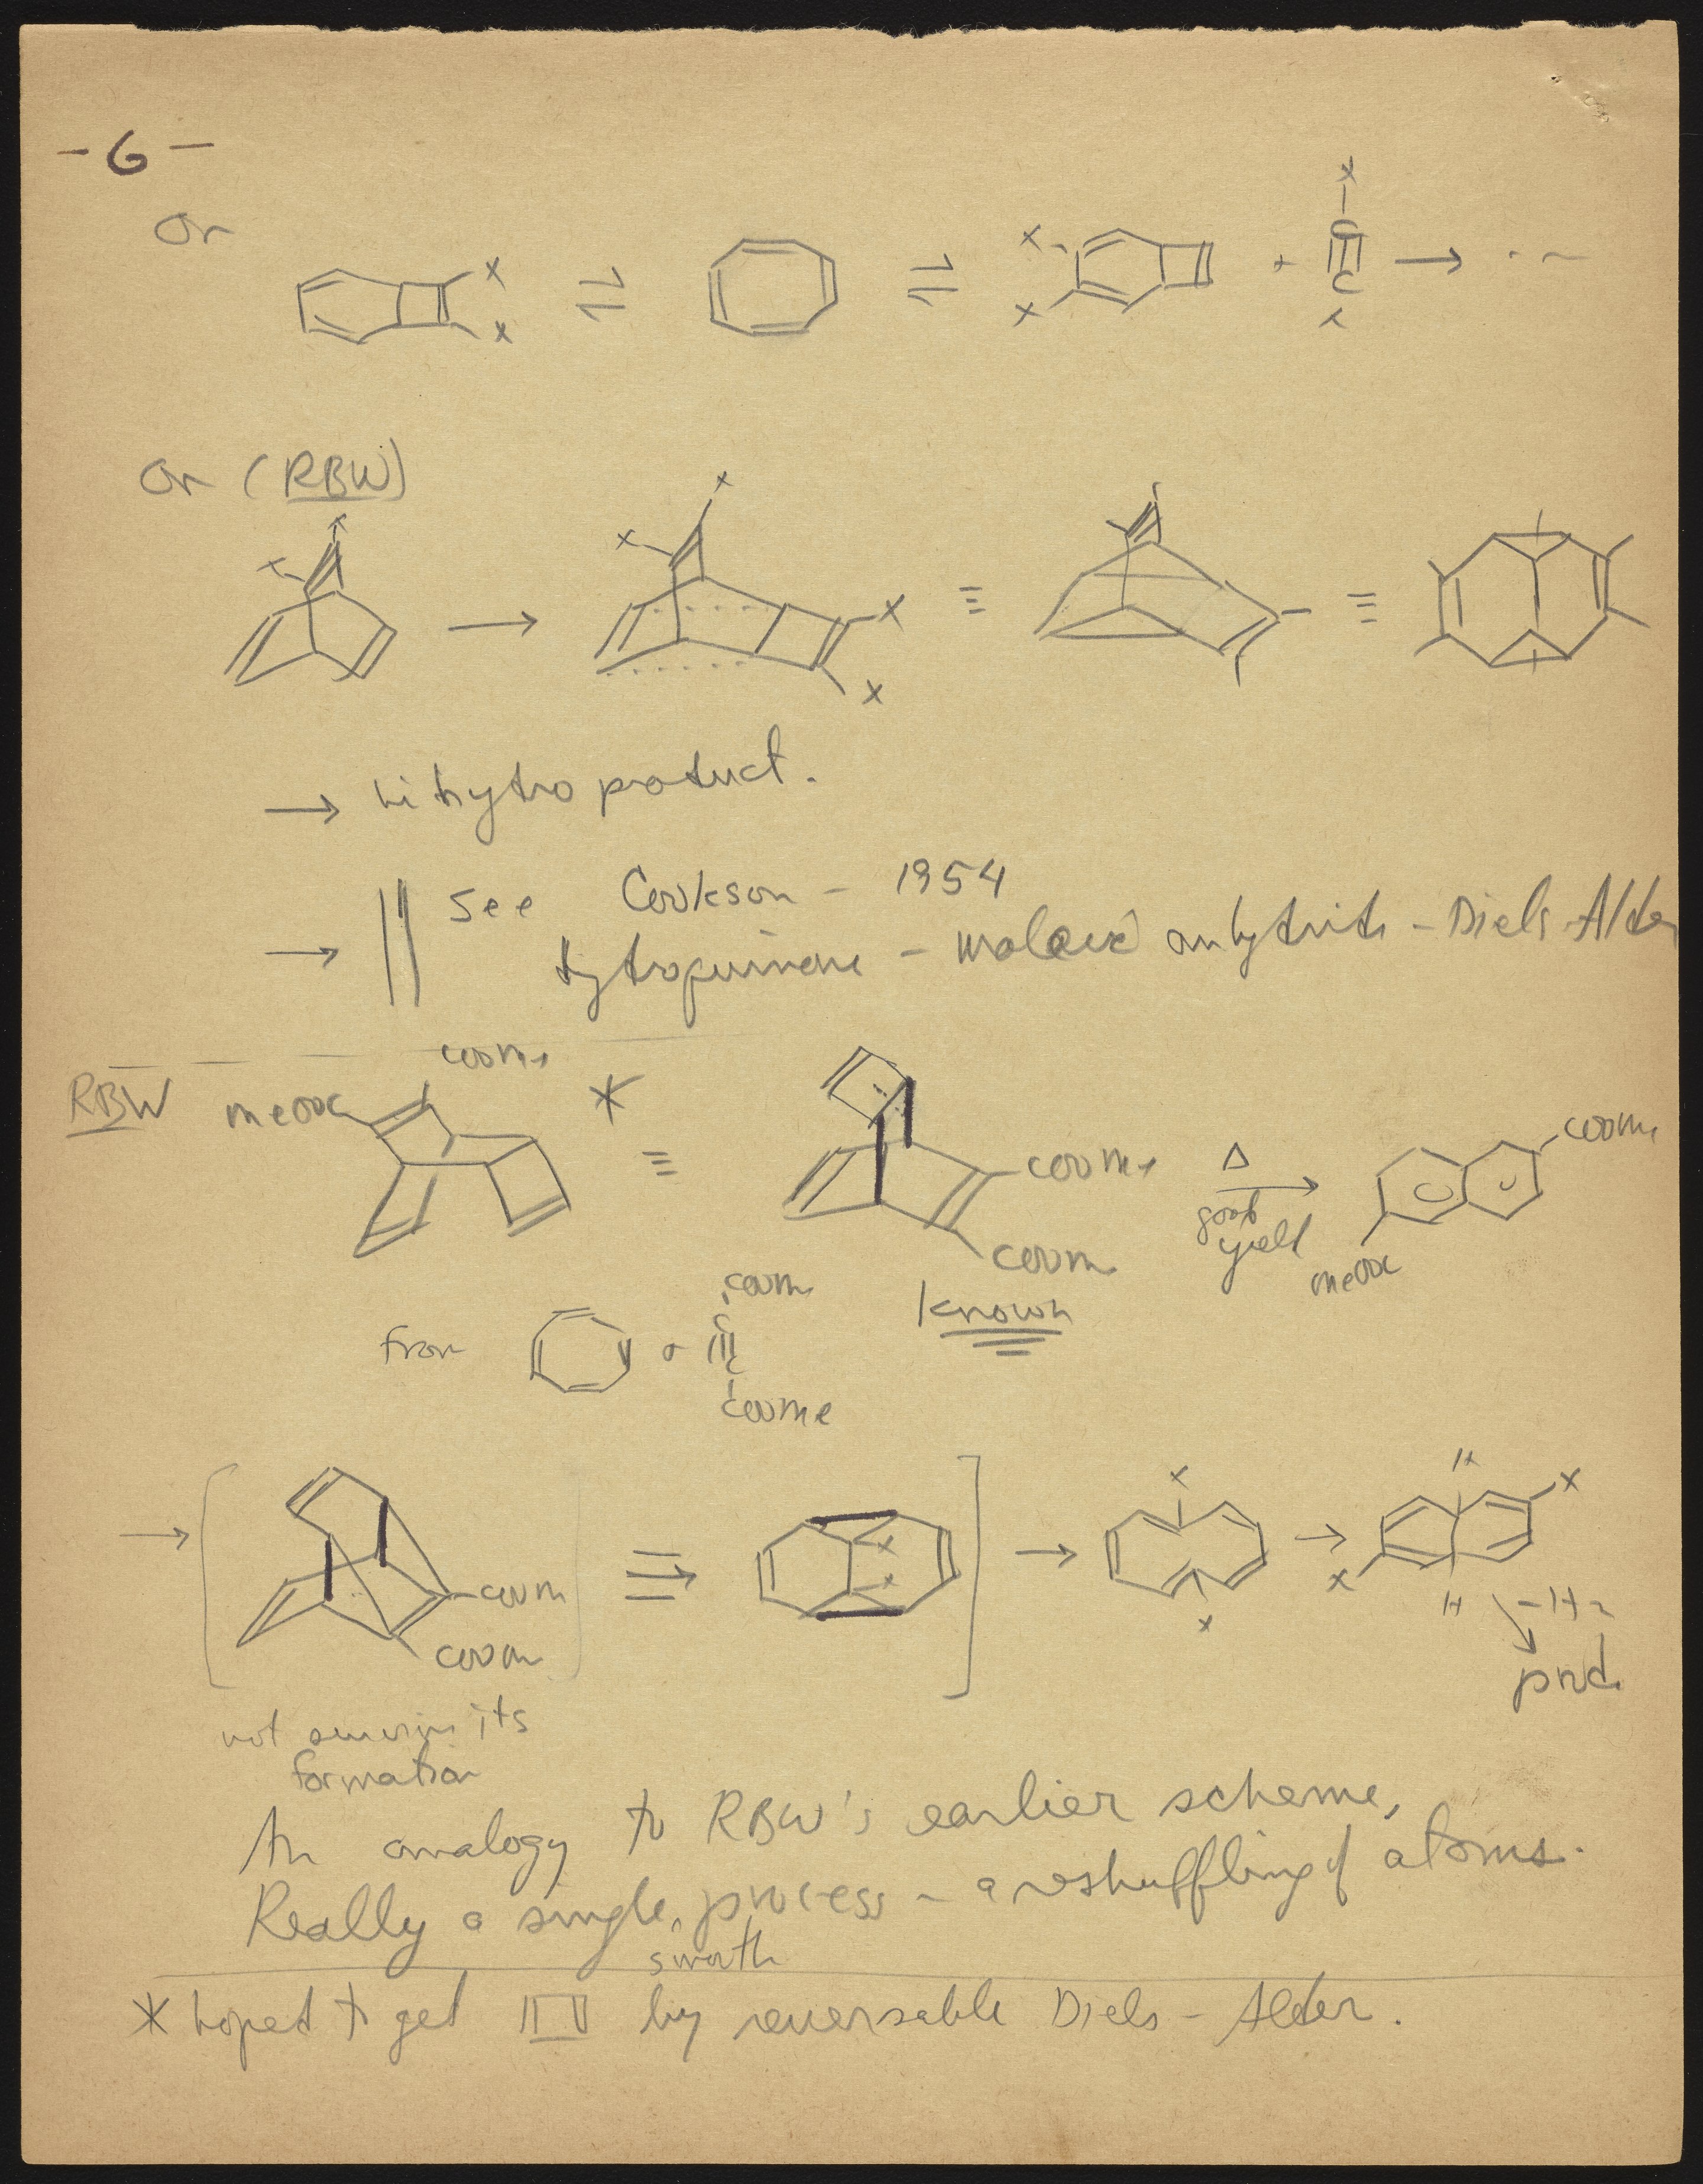 - 6 -
Or
X
X X
C
C
X X X
+ → . . ~
Or (RBW)
X X
X X
X
X
→ dihydro product.
→ See Cookson - 1954
Hydroquinone - maleic anhydride - Diels-Alder
RBW MeOOC COOMe *
COOMe Δ COOMe
good
yield
COOMe MeOOC
Known
from + COOMe
C
C
COOMe
COOMe
COOMe
X X
X X
X H
H
-H2
prod.
not survive its
formation
An analogy to RBW's earlier scheme.
Really a single, smooth process - a reshuffling of atoms.
* hoped to get by reversable Diels-Alder.